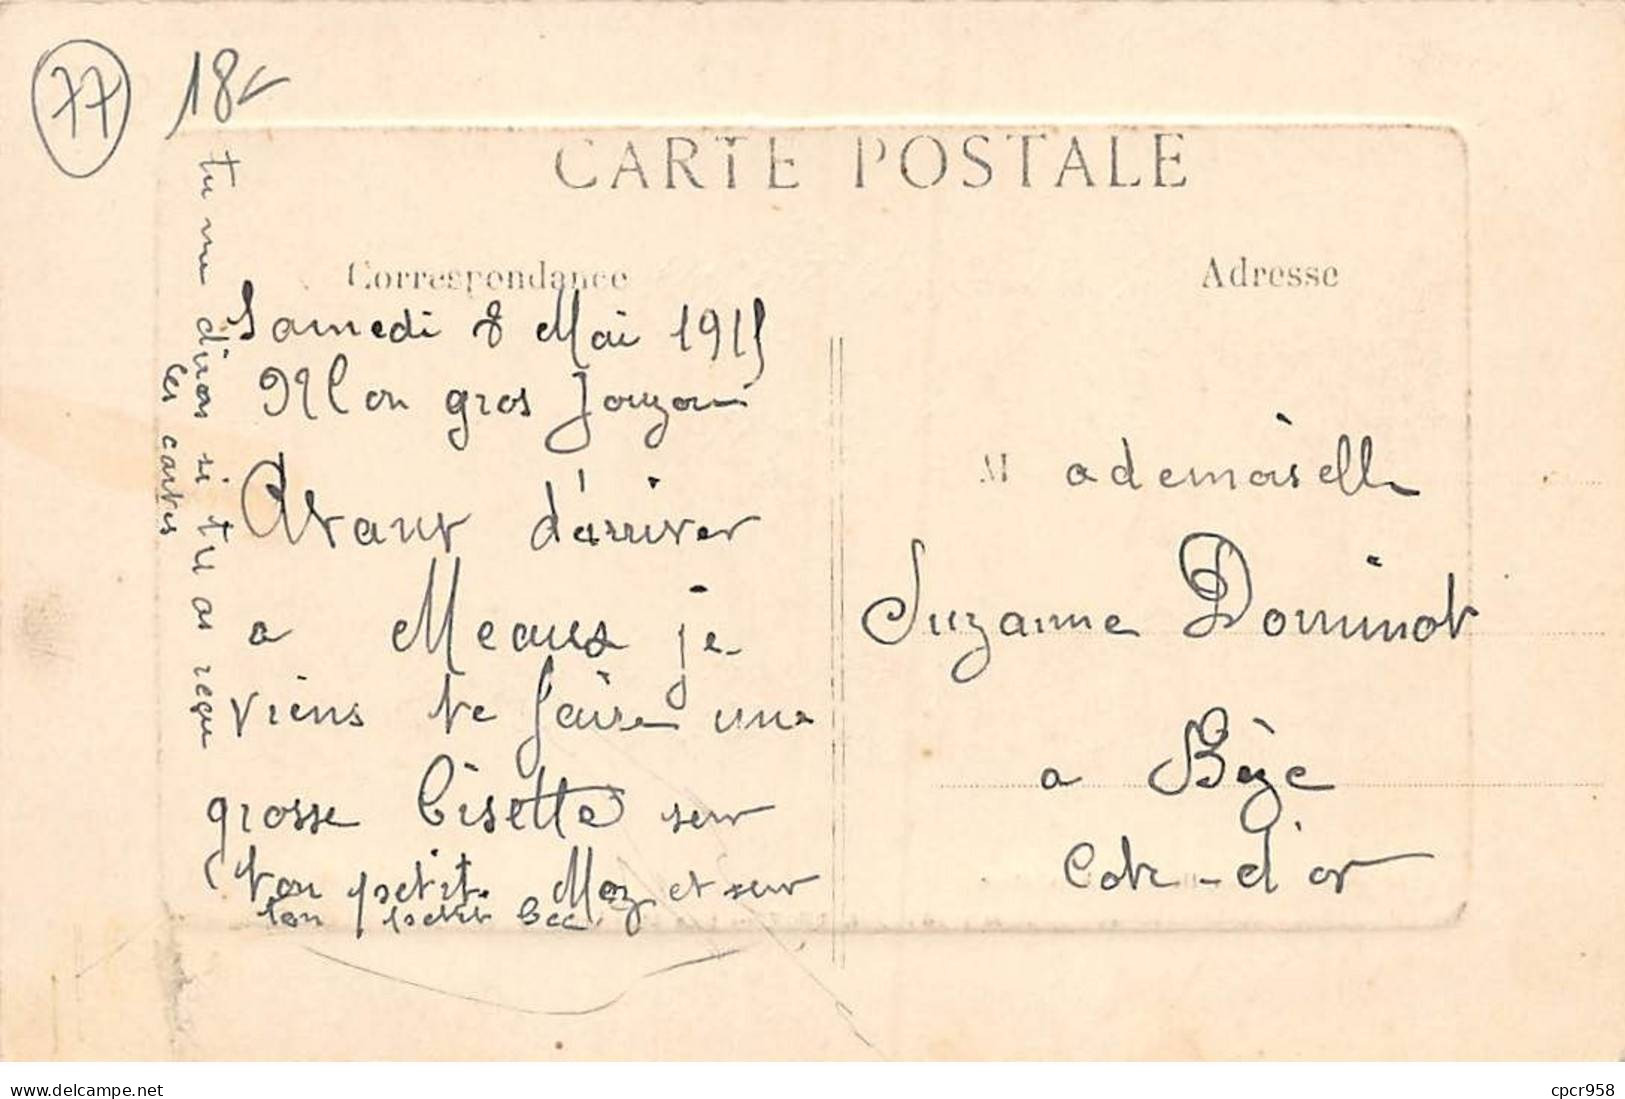 77
18
CARTE POSTALE
Correspondance
Adresse
Samedi 8 Mai 1915
Mon gros
Avant d'arriver
a Meaux je
viens te faire une
grosse bisette sur
ton petit Moz et sur
ton petit bec
tu me diras si tu as reçu
les cartes
M ademoiselle
Suzanne Dominot
a Bèze
Cote-d'or
www.delcampe.net
cpcr958